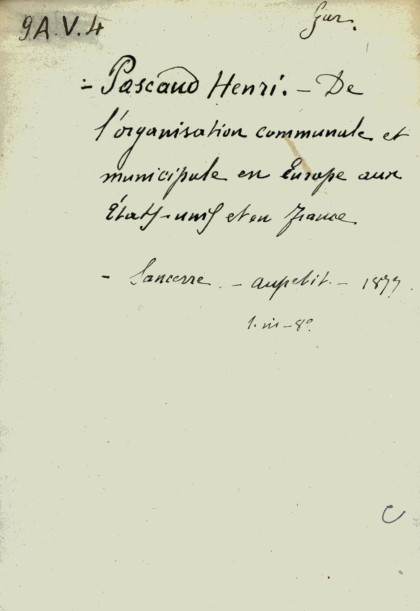 9A.V.4
Jur.
- Pascaud Henri. - De
l'organisation communale et
municipale en Europe aux
États-unis et en France
- Sancerre. - Aupetit. - 1877.
1. in-8°
C